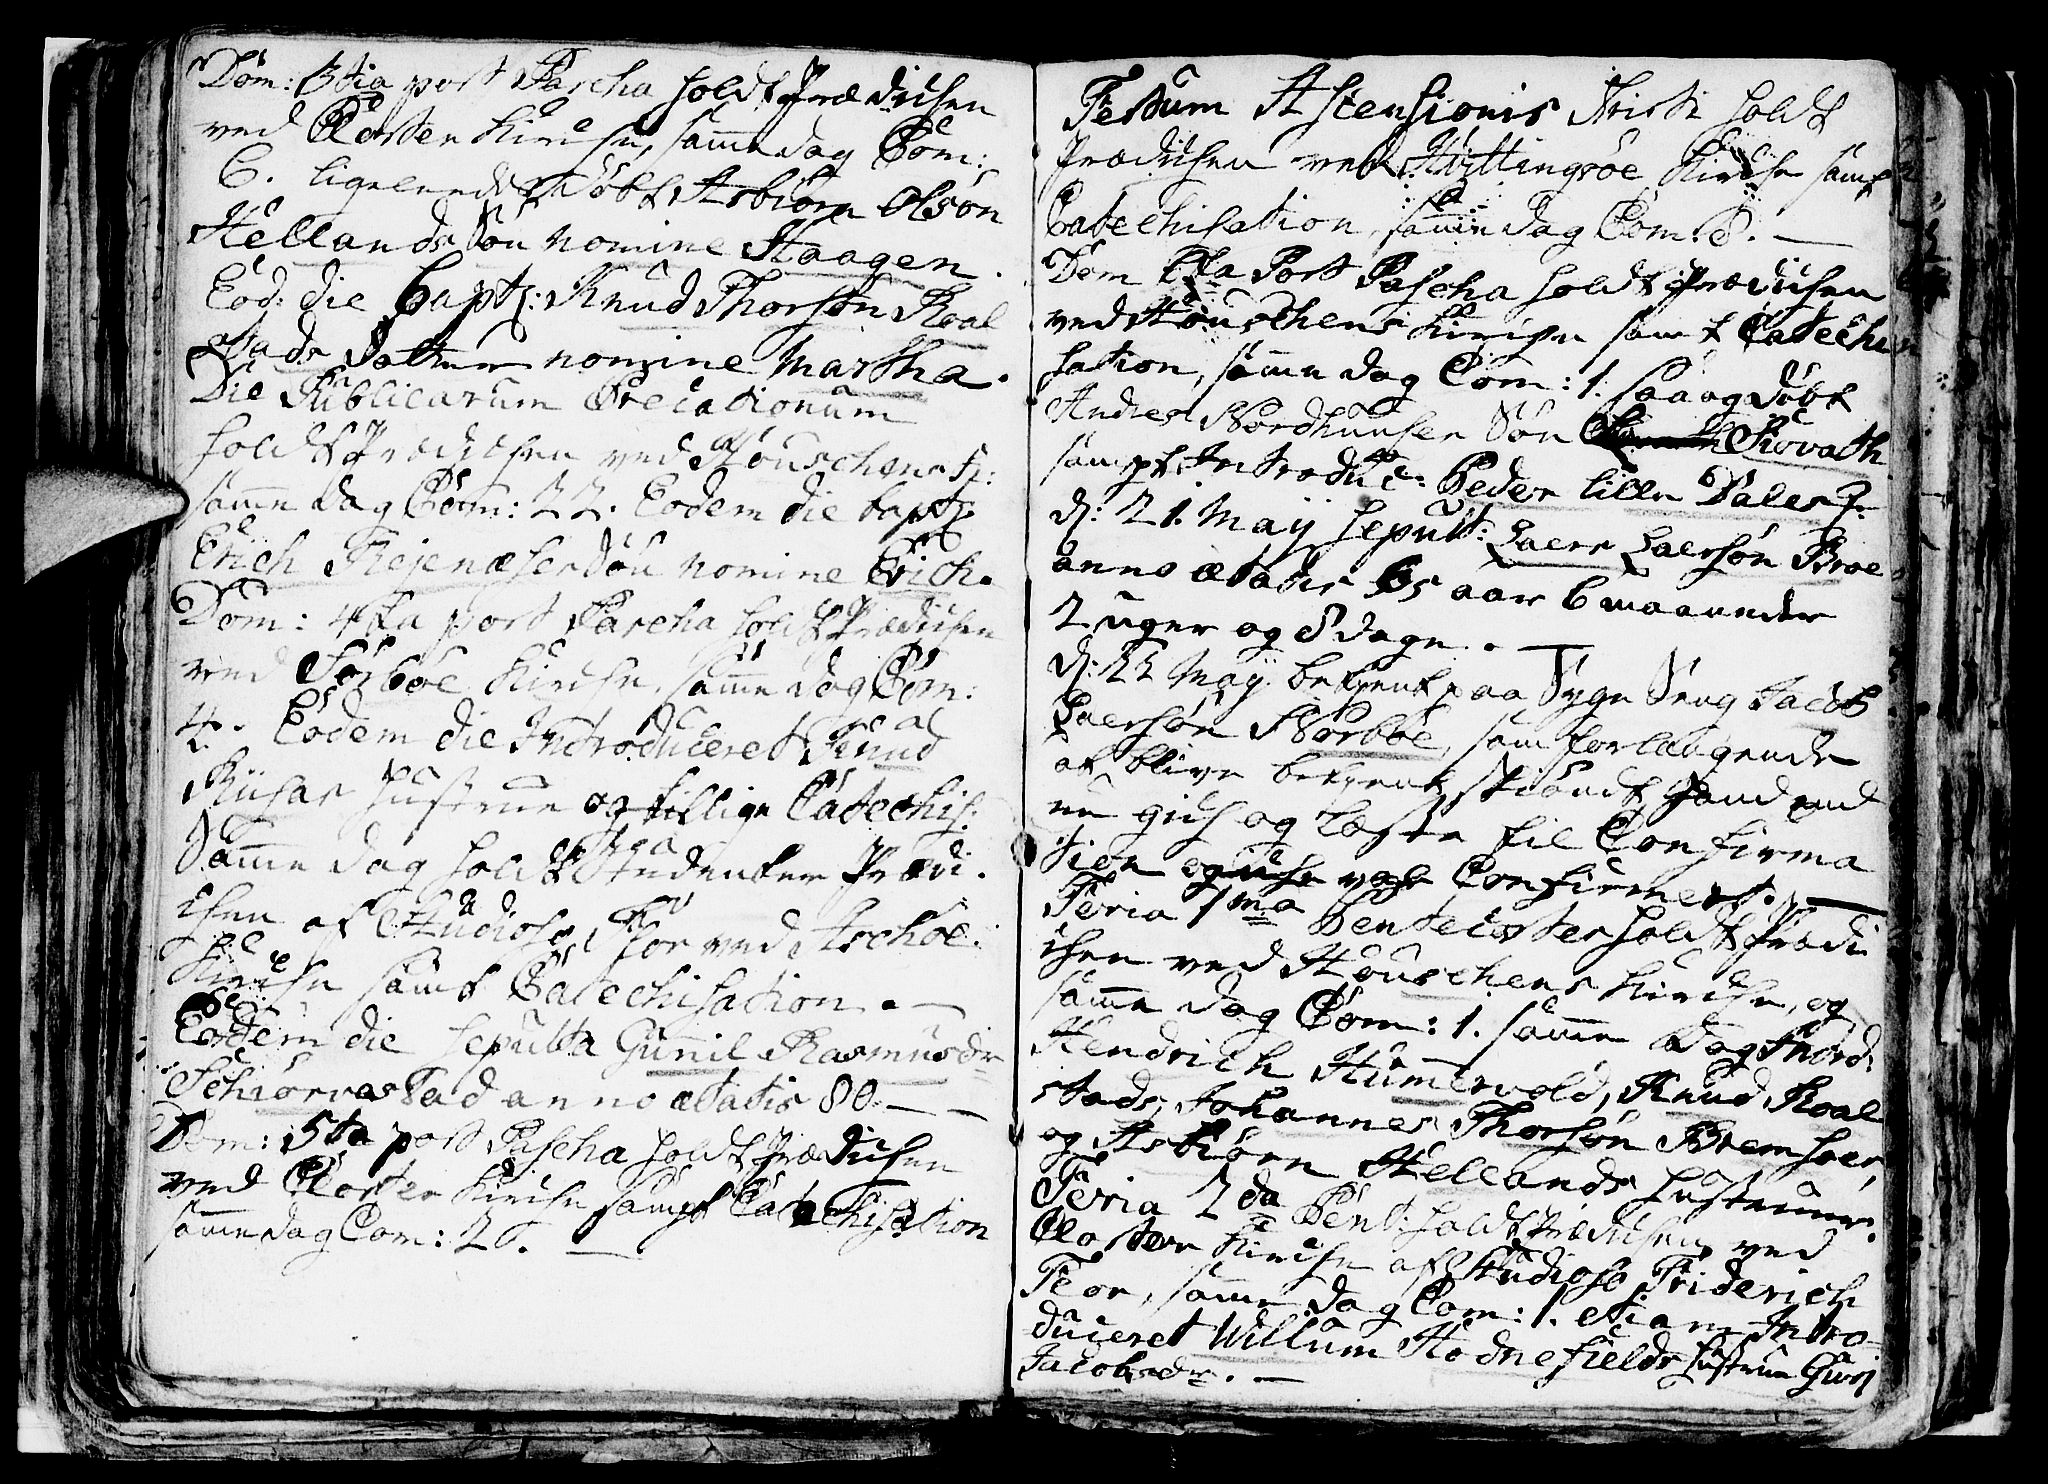 Dom: 3tia post Pascha holdt Prædichen
ved Closter Kirche, samme dag Com:
6. ligeleedes døbt Asbiørn Olsøn
Hellands Søn nomine Haagen.
Eod: die bapt: Knud Thorsøn Roal
stads Datter nomine Martha.
Die Publicarum Precationum
holdt Prædichen ved Houschens K:
samme dag Com: 22. Eodem die bapt:
Erich Rejenæses Søn nomine Erich.
Dom: 4ta post Pascha holdt Prædichen
ved Sørbøe Kirche, samme dag Com:
4. Eodem die Introduceret Knud
Hustrue og tillige Catechis:
Samme dag holdt Studenten Prædi.
chen af Studioso Flor ved Aschøe
Kirche samt Catechisation. —
Eodem die sepulta Gunnil Rasmusdr
Schiørvastad anno ætatis 80. — —
Dom: 5ta post Pascha holdt Prædichen
ved Closter Kirche sampt Catechisation
samme dag Com: 26. —
Festum Ascensionis Christi holdt
Prædichen ved Hvittingsøe Kirche samt
Catechisation, samme dag Com: 8. —
Dom 6ta Post Pascha holdt Prædichen
ved Houschens Kirche samt Catechi
sation, samme dag Com: 1. saa og døbt
Andres Nordhuuses Søn
sampt Introduc: Peder lille Dales H.
d: 21. Maÿ sepult: Laers Laersøn Broe
anno ætatis 65 aar 6 maaneder
2 uger og 8 dage. —
d: 22 Maÿ betient paa Syge Seng Jacob
Laersøn Norbøe, som forlangende
at blive betient
og til Confirma
tion Confirmert. —
Feria 1ma Pentecostes holdt Prædi
chen ved Houschens Kirche, og
samme dag Com: 1. samme Dag Introd:
Hendrich Humervold, Knud Roal
stads, Johannes Thorsøn Bremsær,
og Asbiørn Hellands Hustruer.
Feria 2da Pent: holdt Prædichen ved
Closter Kirche af Studioso Friderich
Flor, samme dag Com: 1. etiam Intro-
duceret Willum Hodnefields Hustrue Guri
Jacobsdr. —